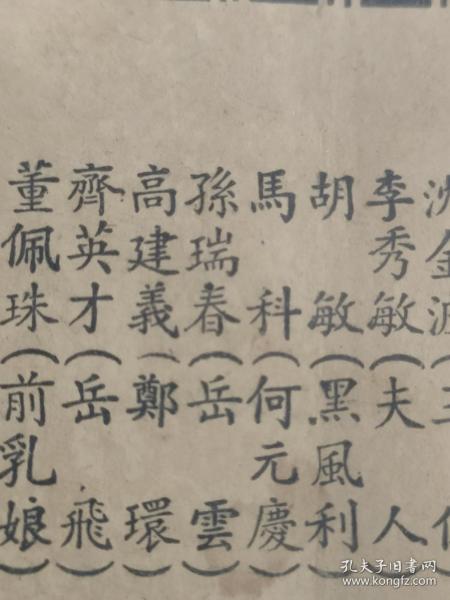 李秀敏（夫人）
胡敏（黑風利）
馬科（何元慶）
孫瑞春（岳雲）
高建義（鄭環）
齊英才（岳飛）
董佩珠（前乳娘）
孔夫子旧书网
www.kongfz.com